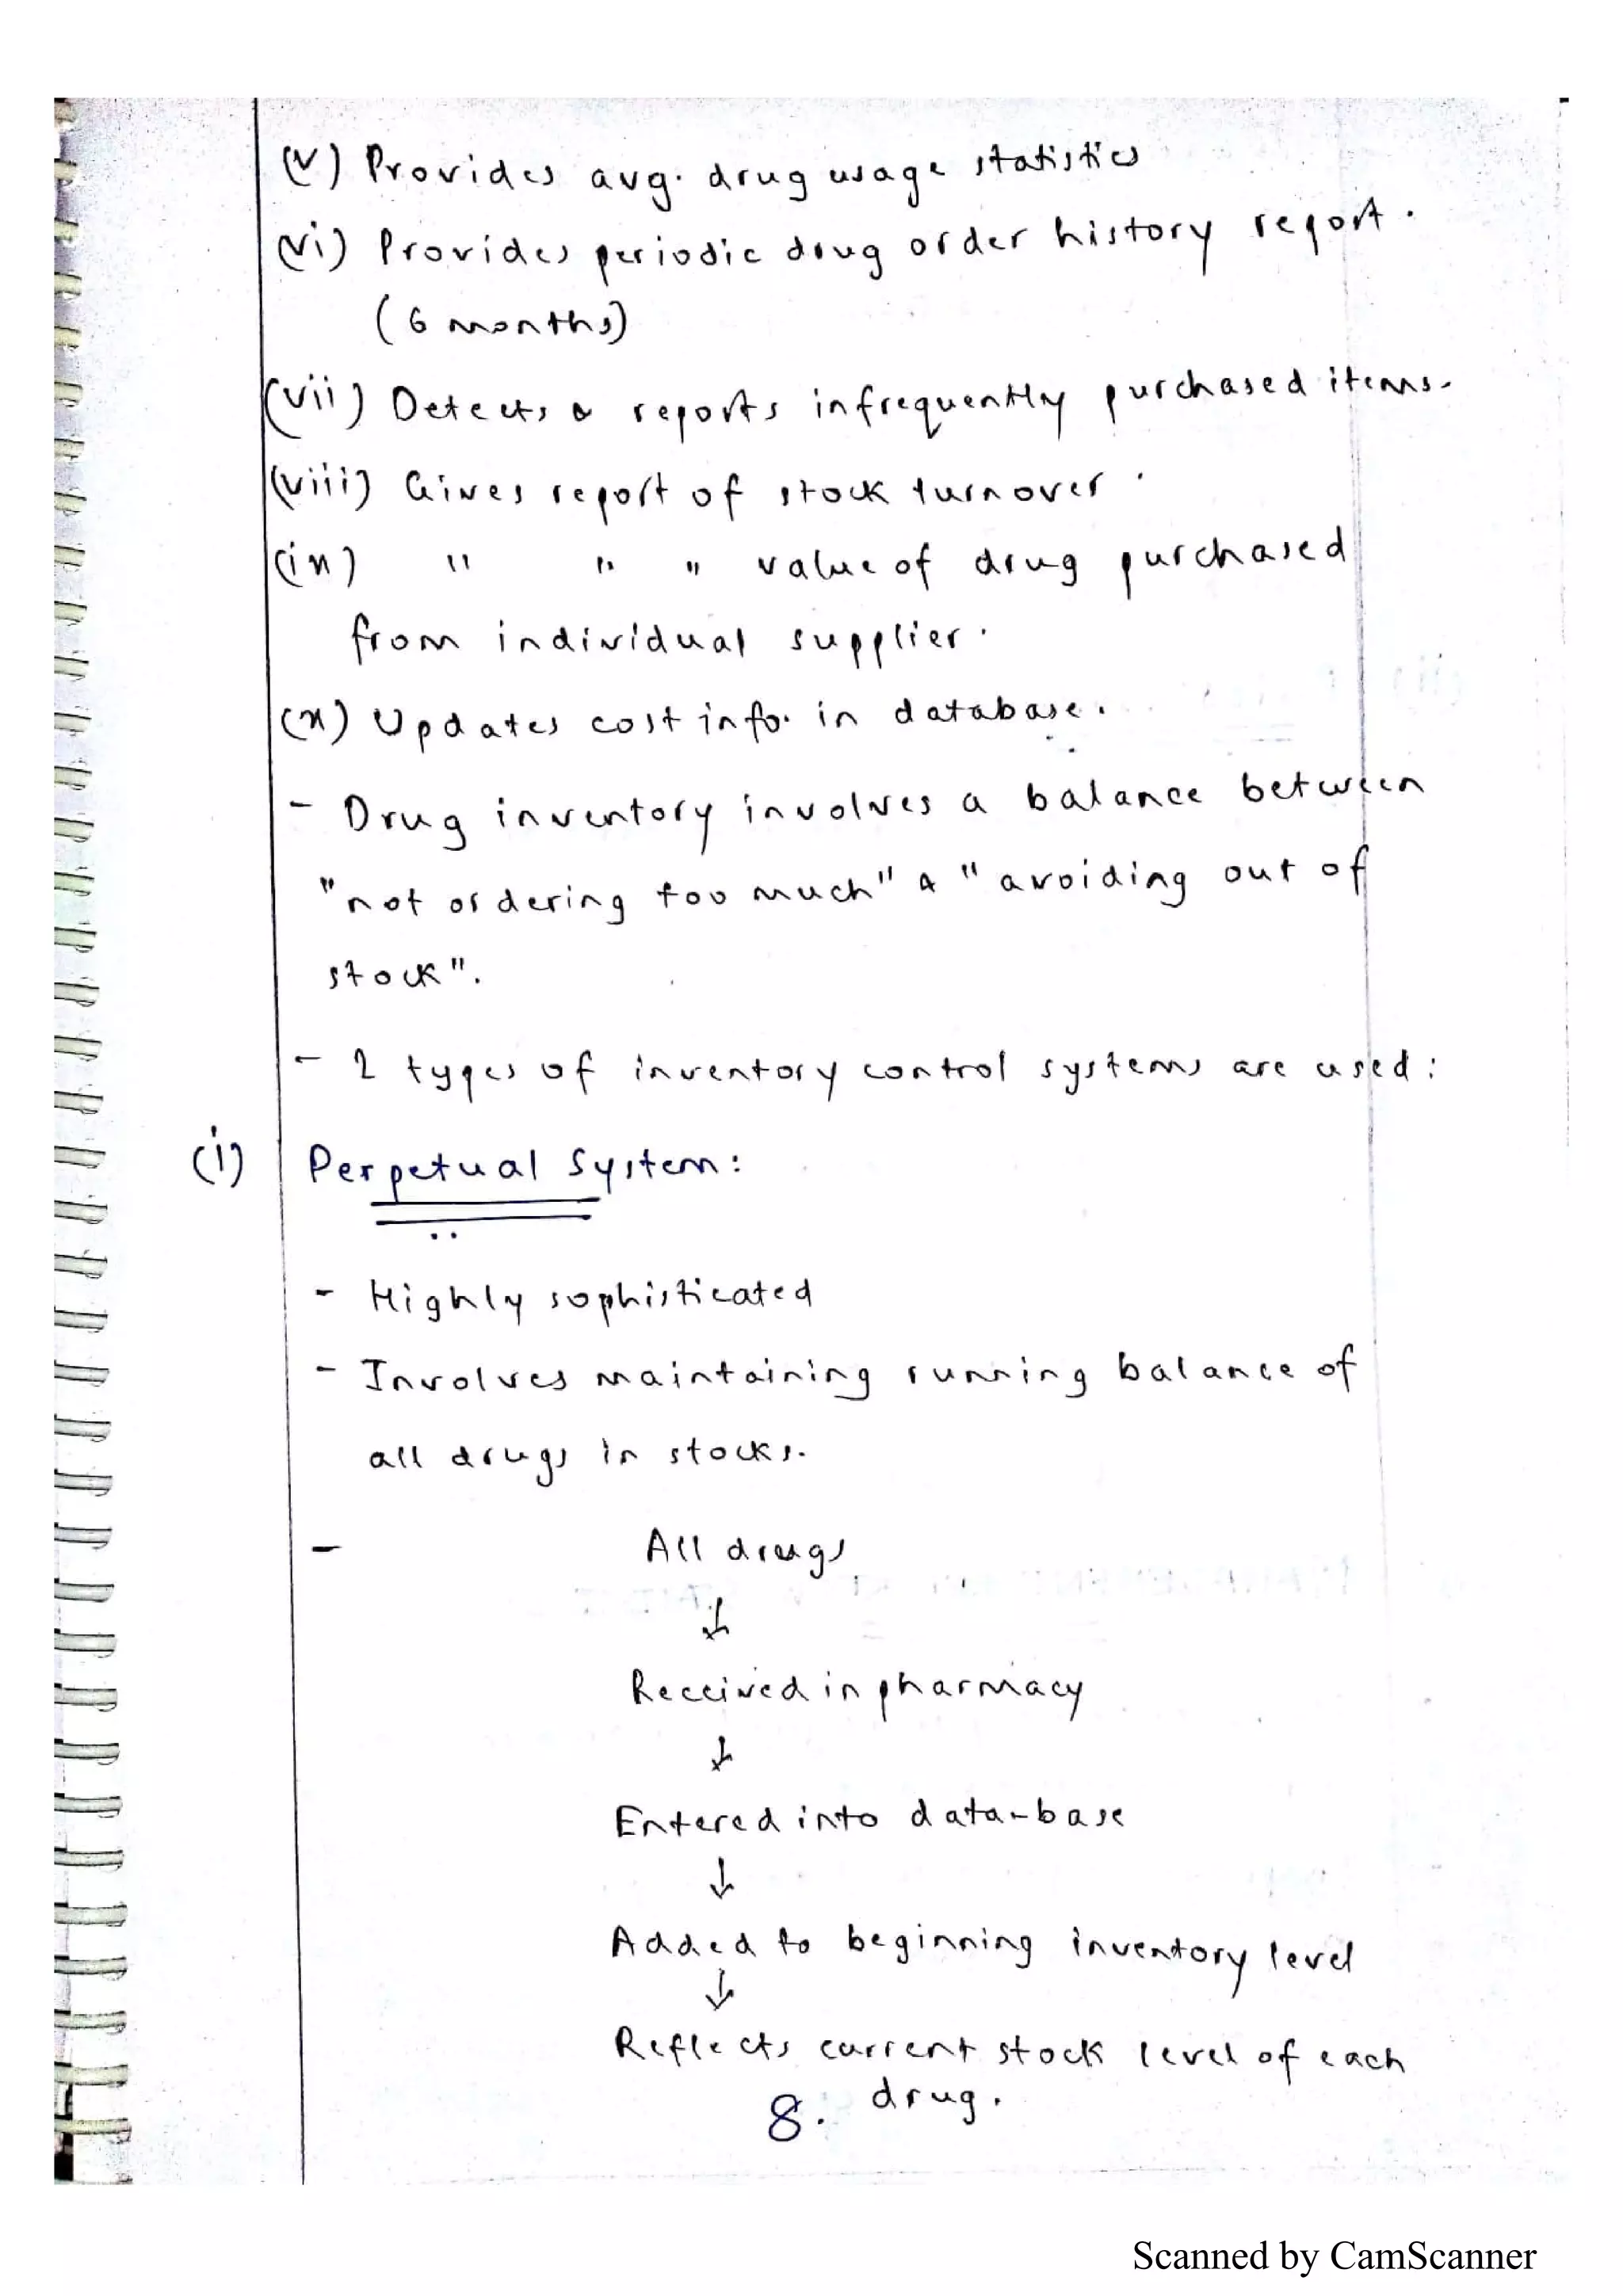 (v) Provides avg. drug usage statistics
(vi) Provides periodic drug order history report.
(6 months)
(vii) Detects & reports infrequently purchased items.
(viii) Gives report of stock turnover.
(ix) " " " value of drug purchased
from individual supplier.
(x) Updates cost info. in database.
- Drug inventory involves a balance between
"not ordering too much" & "avoiding out of
stock".
- 2 types of inventory control systems are used:
(i) Perpetual System:
- Highly sophisticated
- Involves maintaining running balance of
all drugs in stocks.
- All drugs
↓
Received in pharmacy
↓
Entered into data-base
↓
Added to beginning inventory level
↓
Reflects current stock level of each
drug.
8.
Scanned by CamScanner